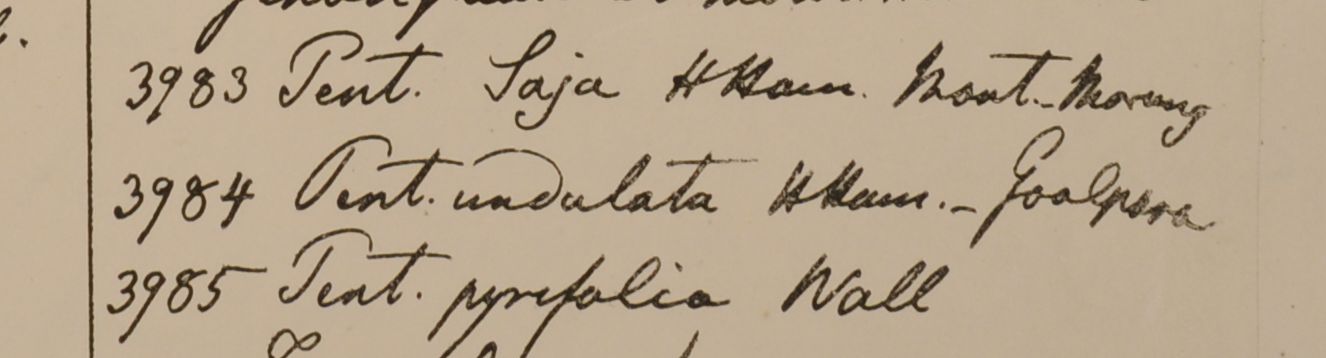 3983 Pent. Saja HHam. Mont. Morung
3984 Pent. undulata HHam. - Goalpara
3985 Pent. pyrifolia Wall